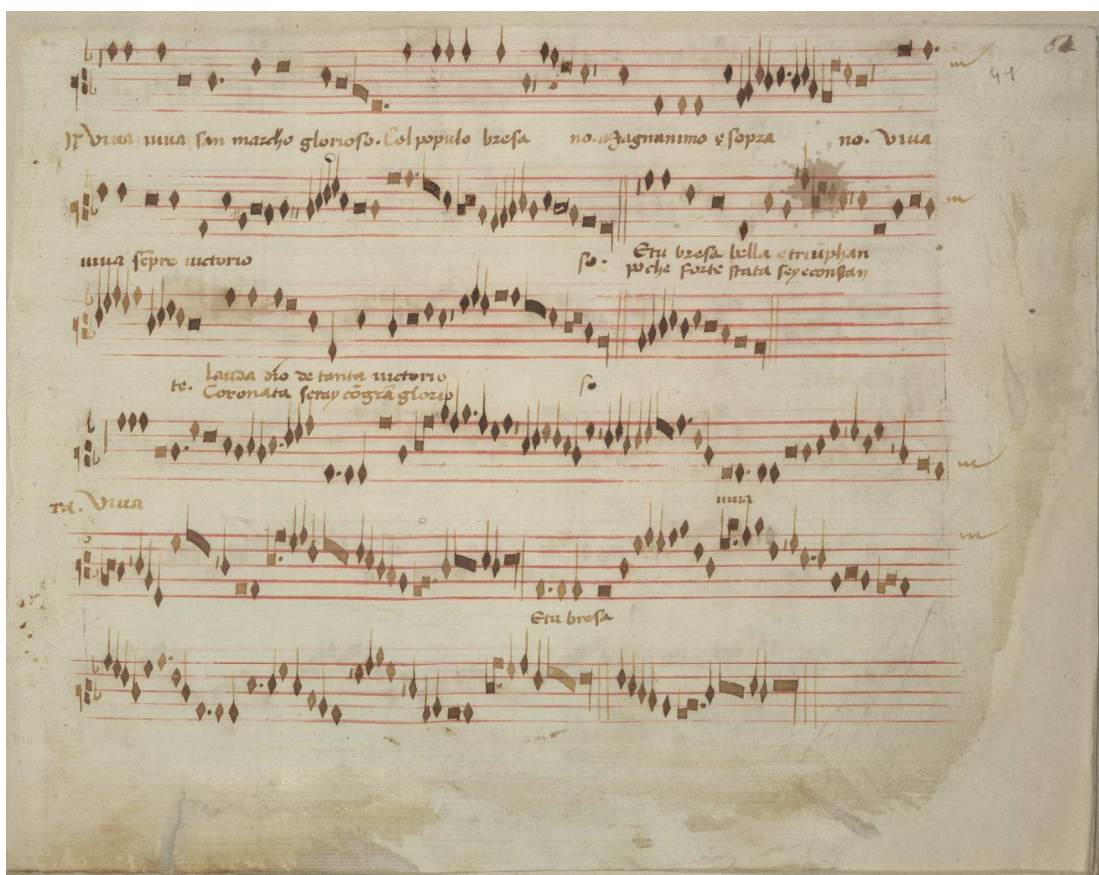 41
Viva viva san marcho glorioso. Col populo bresa no. Magnanimo e sopra no. Viva
viva sēpre victorio so.
Etu bresa bella e triūphan
poche forte stata sey e constan
te. Lauda dio de tanta victorio so
Coronata seray cō grā glorio
Ta. Viva
viva
Etu bresa